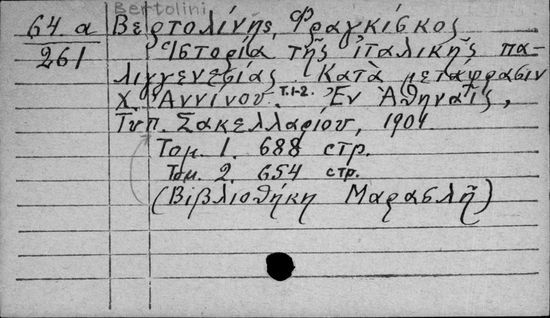 Bertolini
64. a Βερτολίνης, Φραγκίσκος
261 Ἱστορία τῆς ἰταλικῆς πα-
λιγγενεσίας. Κατὰ μετάφρασιν
Χ. Ἀννίνου. т.1-2. Ἐν Ἀθήναις,
Τύπ. Σακελλαρίου, 1901
Τομ. 1. 688 стр.
Τομ. 2. 654 стр.
(Βιβλιοθήκη Μαρασλῆ)